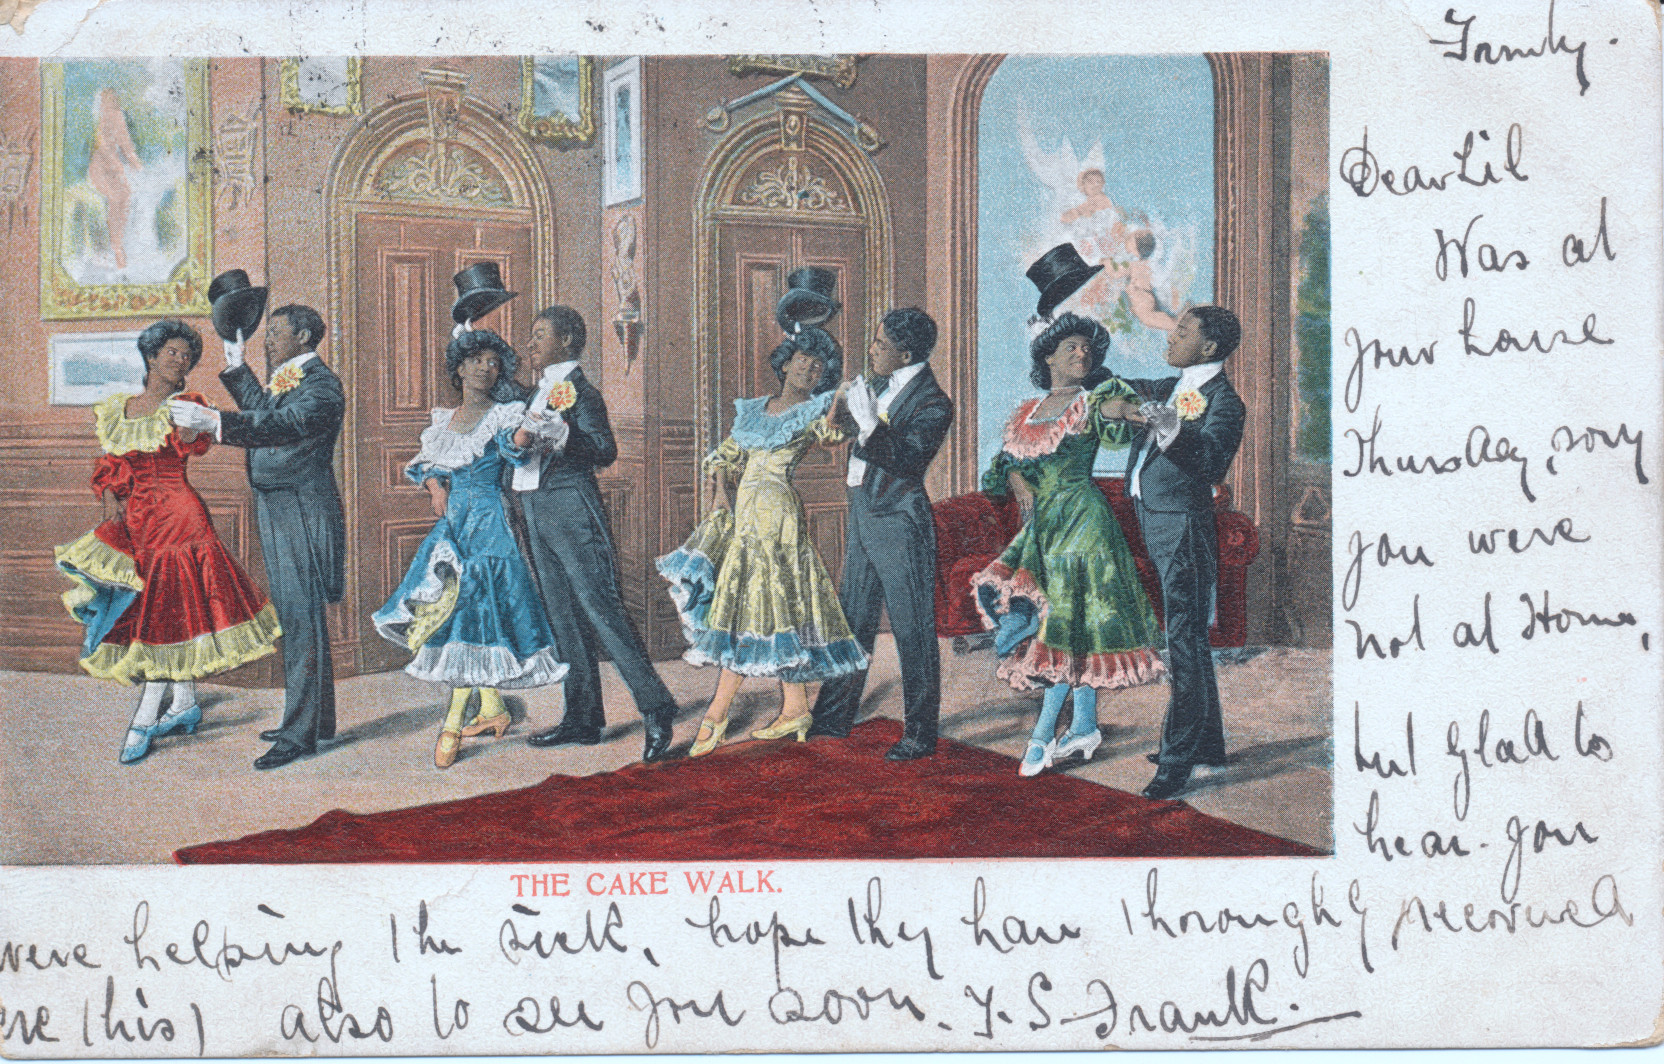 Dear Lil
Was at
your house
Thursday, sorry
you were
not at Home,
but glad to
hear. you
THE CAKE WALK.
were helping the sick, hope they have thoroughly recovered
ere this) also to see you soon. F. S. Frank.